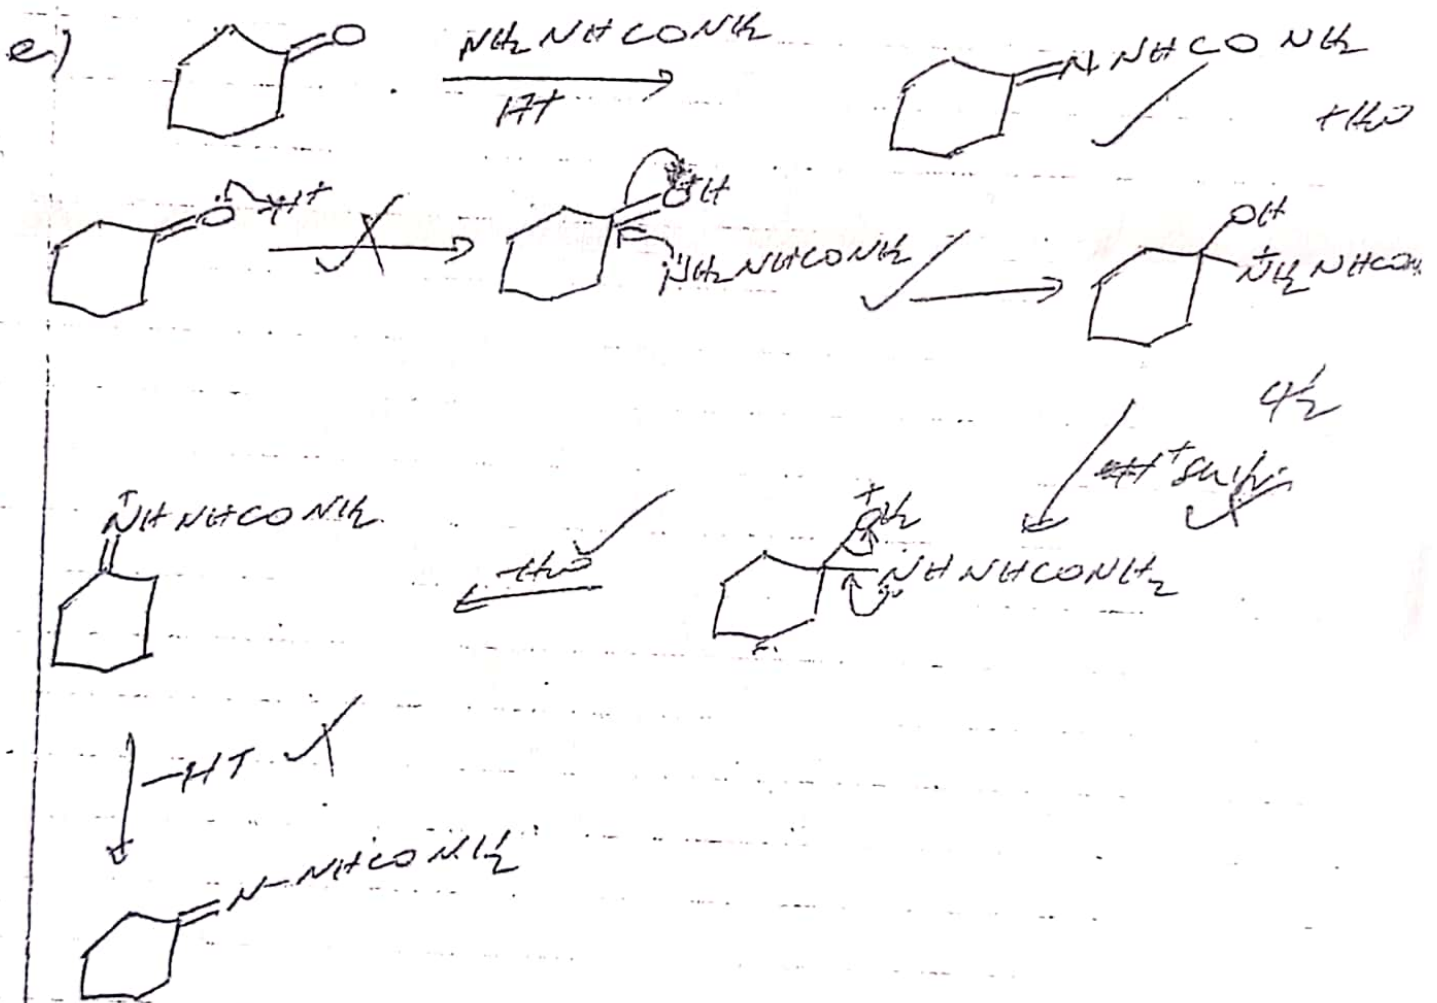 e) O NH₂NHCONH₂ N NHCONH₂
H+ + H₂O
O H+ OH OH
NH₂NHCONH₂ +NH₂NHCO
4½
H+
+NHNHCONH₂ +OH₂
-H₂O NHNHCONH₂
-H+
N-NHCONH₂